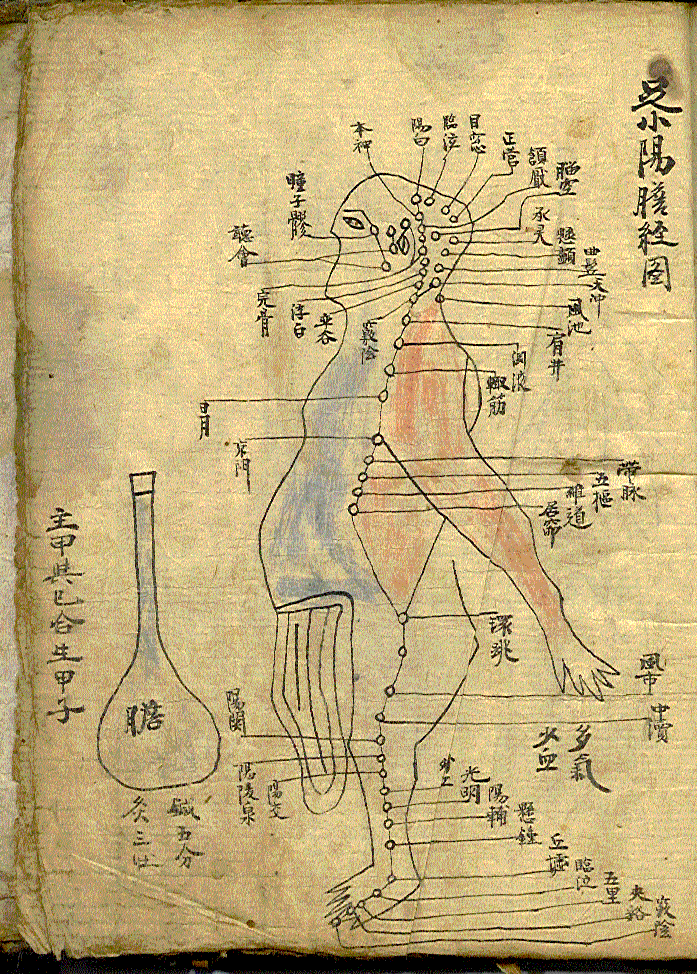 足小陽膽經图
本神
陽白
臨泣
目窓
正营
頷厭
脑空
承灵
懸顱
曲髩
天冲
風池
肩井
渊液
輙筋
瞳子髎
聽會
完骨
浮白
竅陰
日月
京門
帶脉
五樞
維道
居窌
環兆
風市
中瀆
多氣
少血
陽関
陽陵泉
陽交
外丘
光明
陽輔
懸鍾
丘墟
臨泣
五里
夹谿
竅陰
膽
鍼五分
灸三壮
主甲與己合生甲子